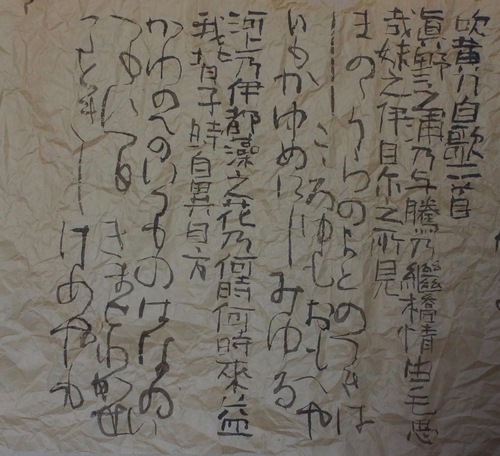 吹黄刀自歌二首
眞野之浦乃与騰乃繼橋情由毛思
哉妹之伊目尓之所見
まのゝうらのよとのつきは
し こゝろゆも おもへや
いもかゆめにし みゆる
河上乃伊都藻之花乃何時何時來益
我背子時自異目八方
かわのへのいつものはなのい
つもいつも きませわかせ
こときし けめやも